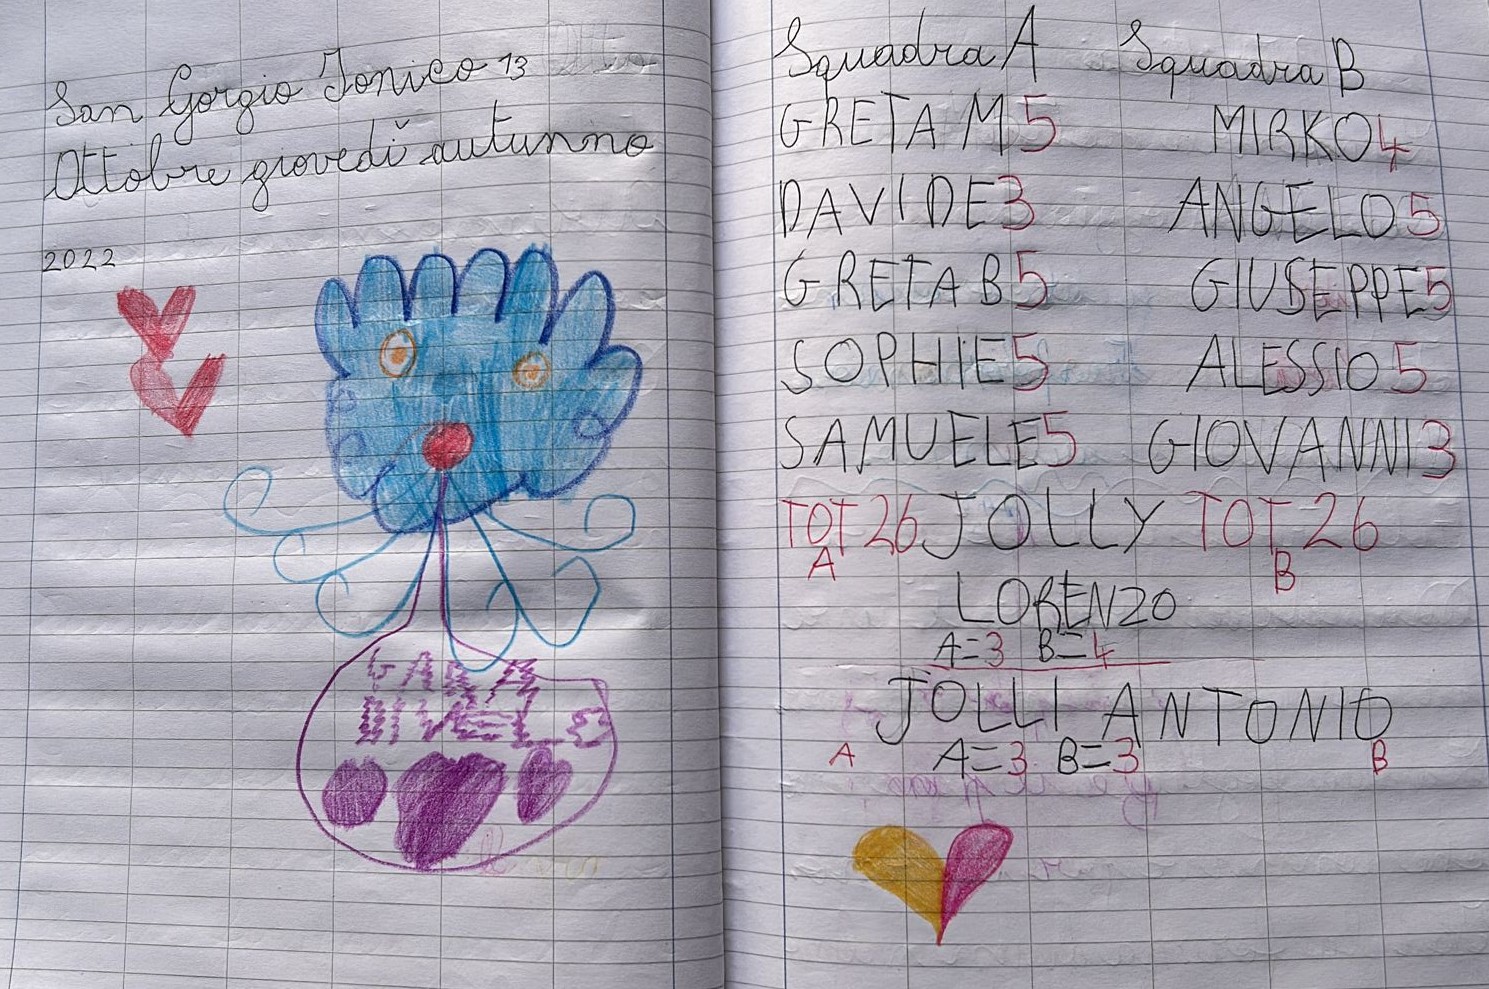 San Gorgio Jonico 13
Ottobre giovedì autunno
2022
GARA
Squadra A Squadra B
GRETA M 5 MIRKO 4
DAVIDE 3 ANGELO 5
GRETA B 5 GIUSEPPE 5
SOPHIE 5 ALESSIO 5
SAMUELE 5 GIOVANNI 3
TOT 26 JOLLY TOT 26
A B
LORENZO
A=3 B=4
JOLLI ANTONIO
A A=3 B=3 B